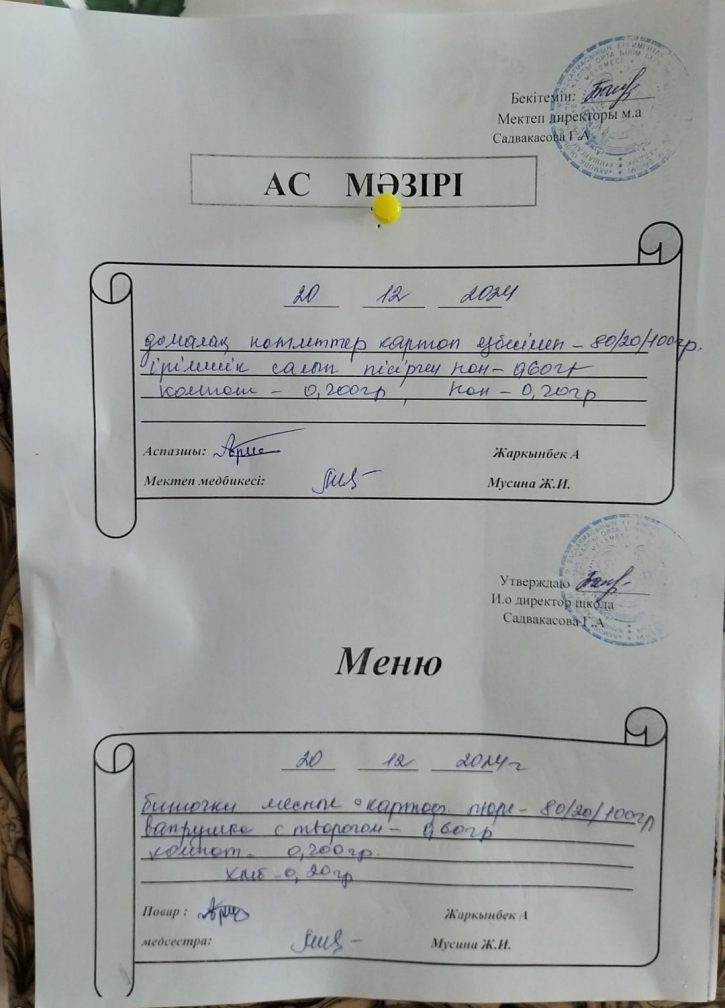 Бекітемін:
Мектеп директоры м.а
Садвакасова Г.А
АС МӘЗІРІ
20 12 2024
домалақ котлеттер картоп езбесімен - 80/20/100гр.
ірімшік салып пісірген нан - 0,60гр
компот - 0,200гр, нан - 0,20гр
Аспазшы: Жаркынбек А
Мектеп медбикесі: Мусина Ж.И.
Утверждаю
И.о директор школа
Садвакасова Г.А
Меню
20 12 2024г
биточки мясные картоф. пюре - 80/20/100гр
ватрушка с творогом - 0,60гр
компот - 0,200гр.
хлеб - 0,20гр
Повар : Жаркынбек А
медсестра: Мусина Ж.И.